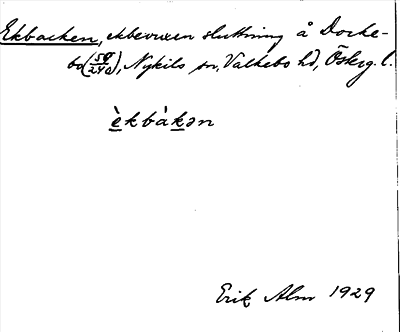 Ekbacken, ekbevuxen sluttning å Docke-
bo (59/240), Nykils sn, Valkebo hd, Österg. l.
èkbàkən
Erik Alm 1929